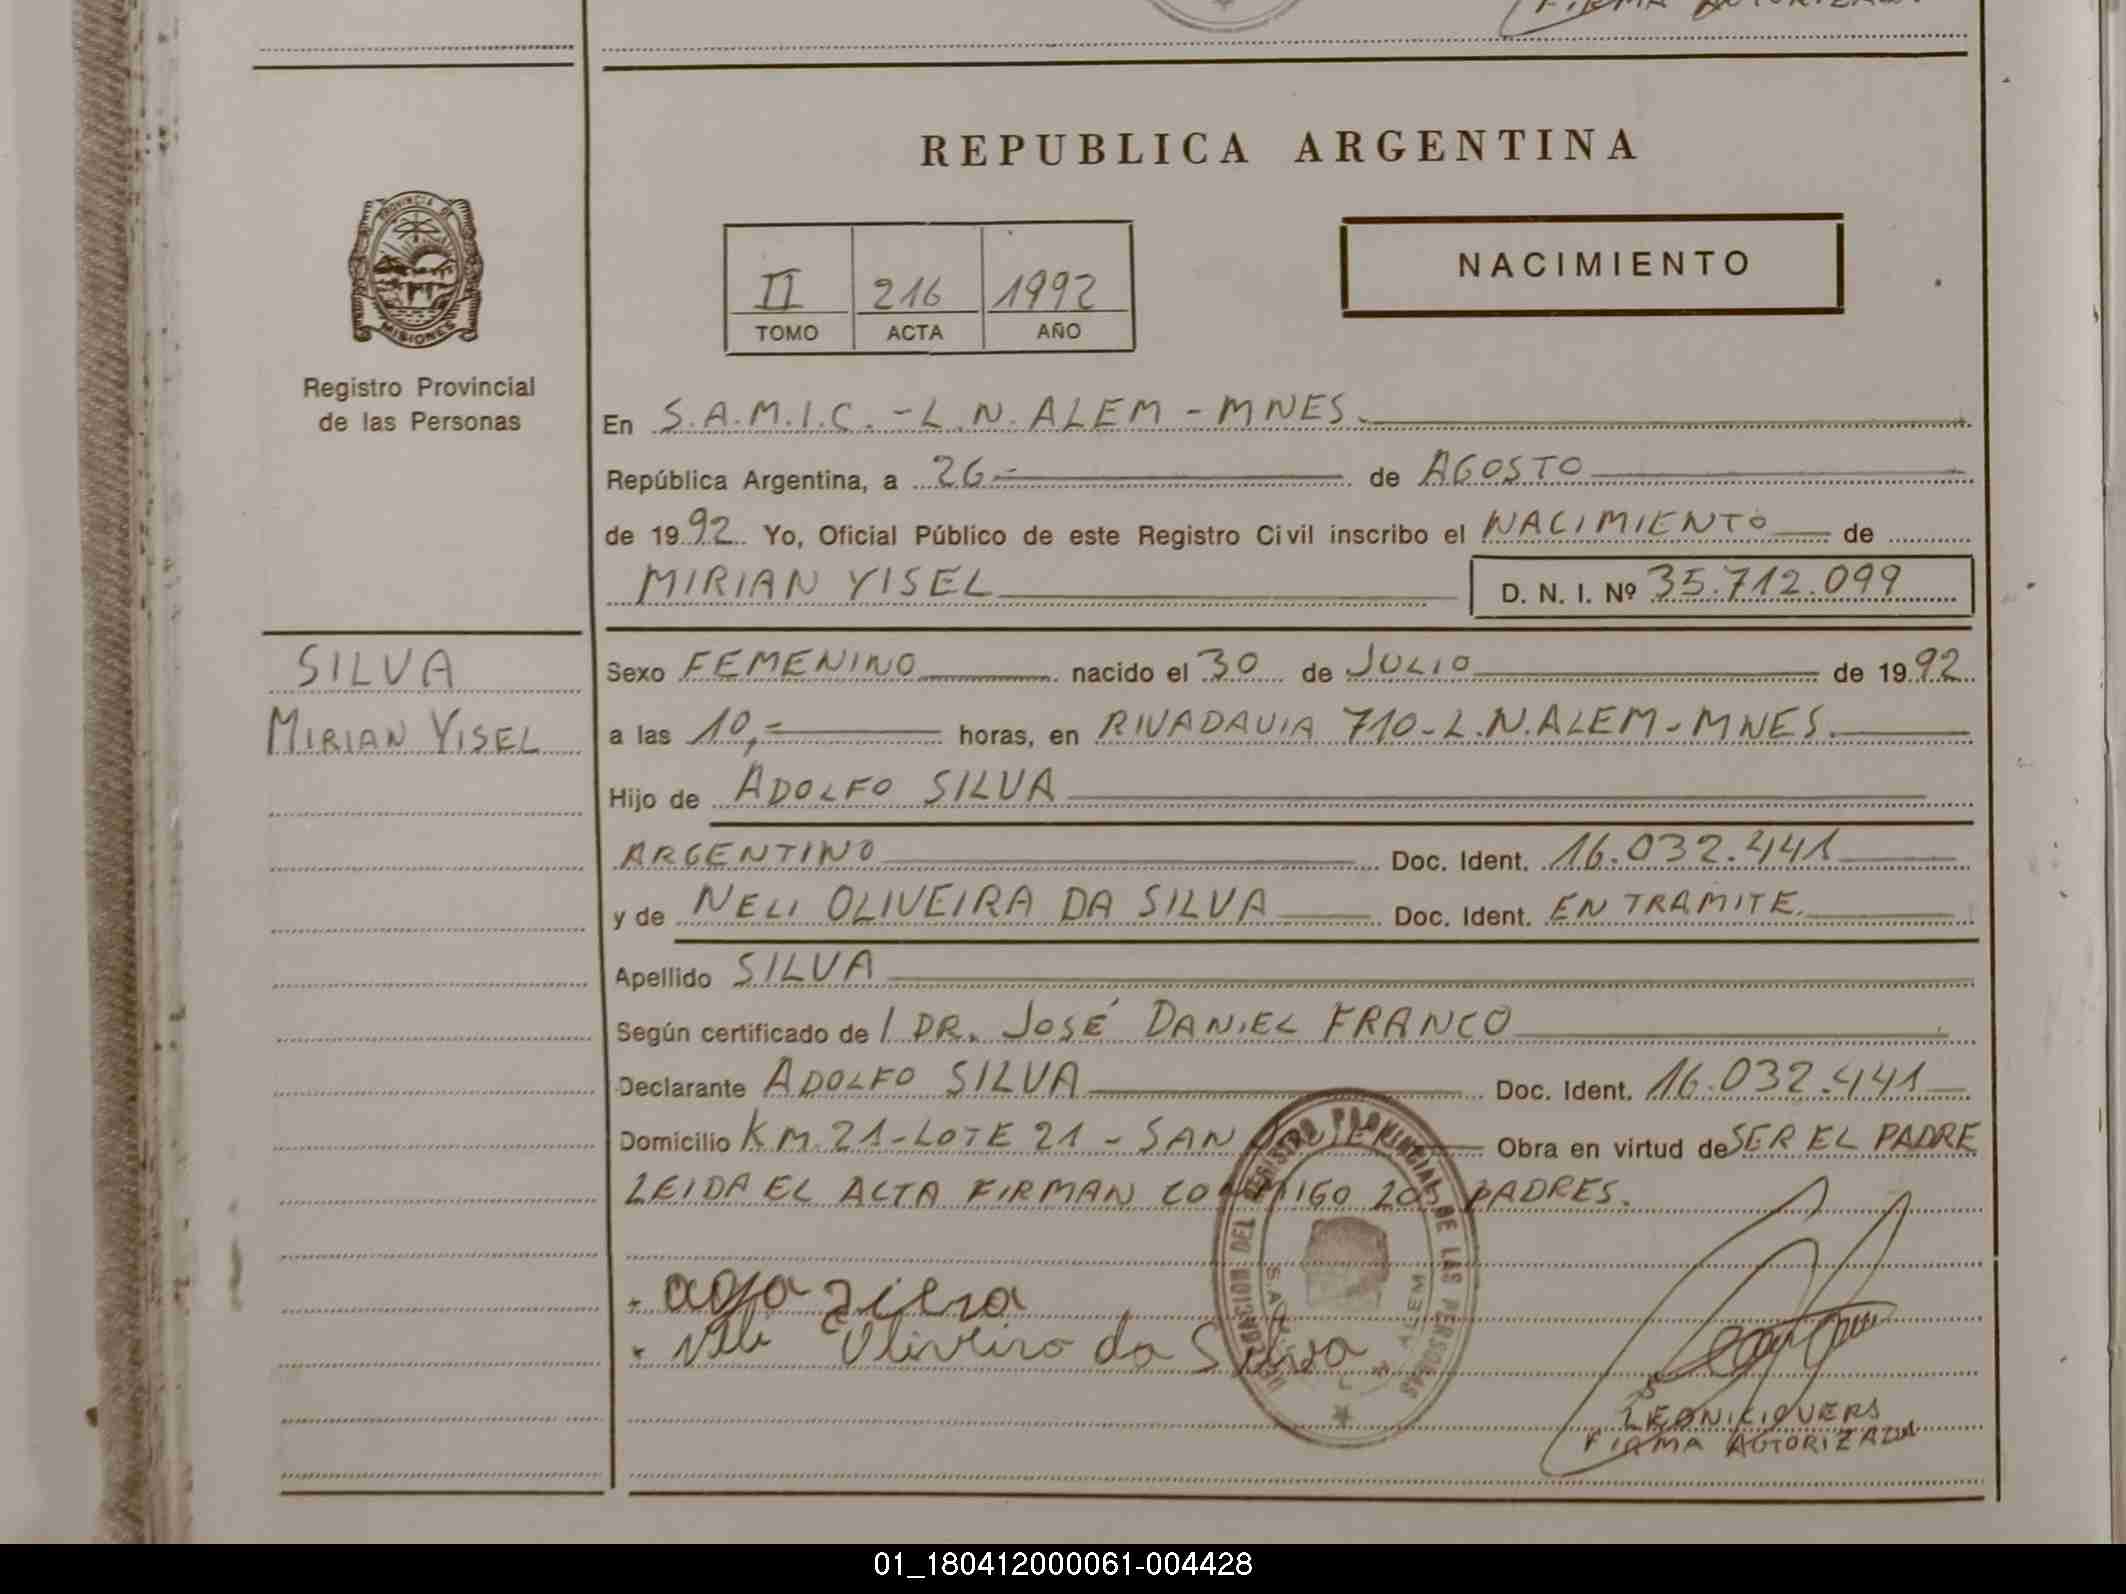 FIRMA AUTORIZADA
REPUBLICA ARGENTINA
PROVINCIA DE
MISIONES
Registro Provincial
de las Personas
II 216 1992
TOMO ACTA AÑO
NACIMIENTO
En S.A.M.I.C. - L.N. ALEM - MNES.
República Argentina, a 26.- de AGOSTO
de 1992 Yo, Oficial Público de este Registro Civil inscribo el NACIMIENTO de
MIRIAN YISEL D. N. I. Nº 35.712.099
SILVA
MIRIAN YISEL
Sexo FEMENINO nacido el 30 de JULIO de 1992
a las 10,- horas, en RIVADAVIA 710 - L.N. ALEM - MNES.
Hijo de ADOLFO SILVA
ARGENTINO Doc. Ident. 16.032.441
y de NELI OLIVEIRA DA SILVA Doc. Ident. EN TRAMITE.
Apellido SILVA
Según certificado de / DR. JOSÉ DANIEL FRANCO
Declarante ADOLFO SILVA Doc. Ident. 16.032.441
Domicilio KM. 21 - LOTE 21 - SAN JAVIER Obra en virtud de SER EL PADRE
LEIDA EL ALTA FIRMAN CONMIGO LOS PADRES.
DELEGACION DEL REGISTRO PROVINCIAL DE LAS PERSONAS
ALEM
Neli Oliveira da Silva
FIRMA AUTORIZADA
01_180412000061-004428